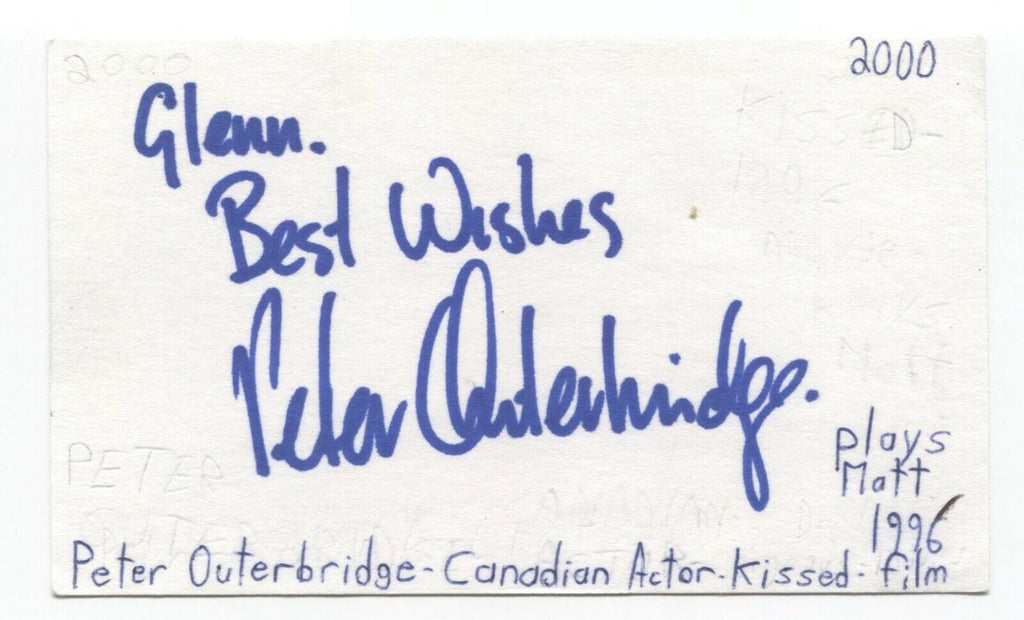 2000
2000
Glenn.
Best Wishes
Peter Outerbridge.
KISSED-
PETER
plays
Matt
1996
Peter Outerbridge-Canadian Actor-Kissed-film